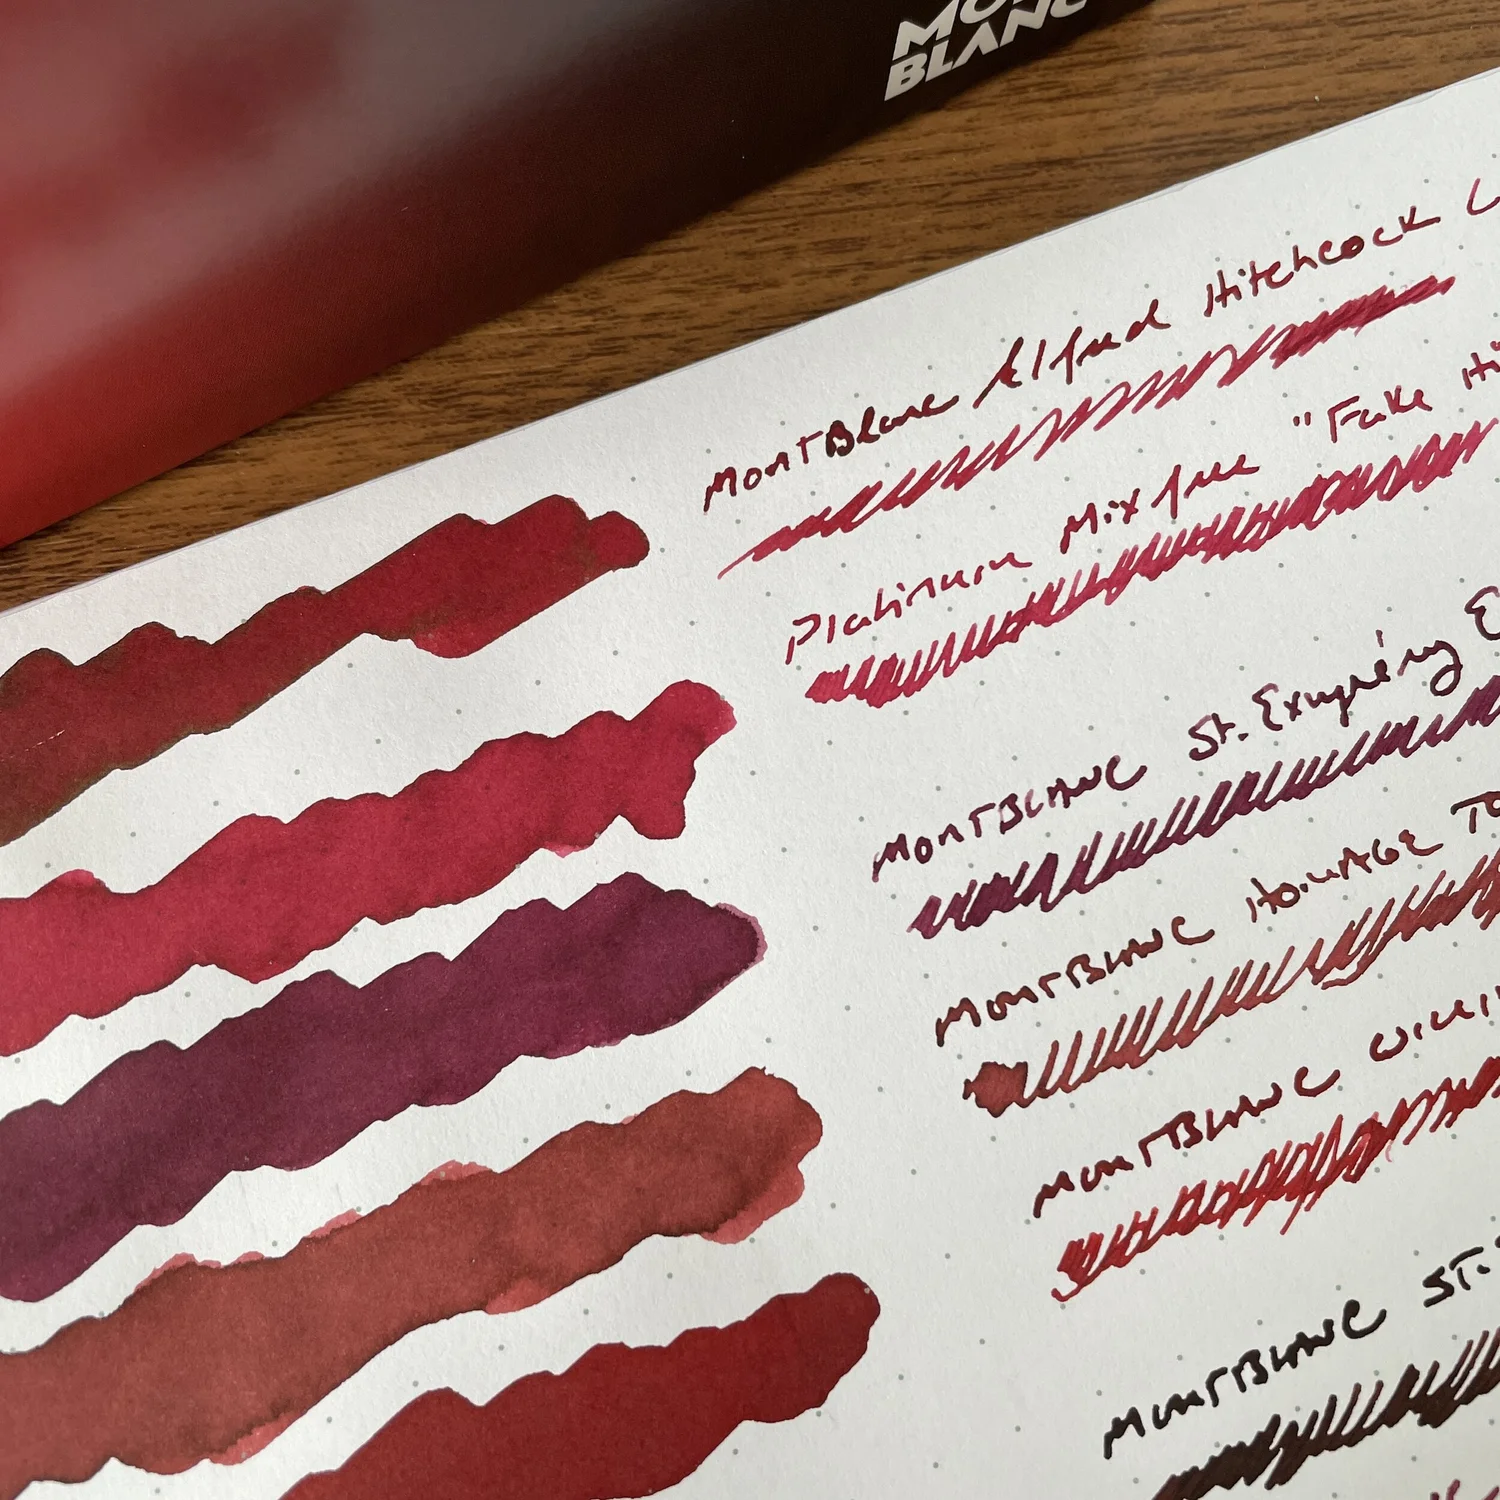 MONT
BLANC
MontBlanc Alfred Hitchcock
Platinum Mixfree "Fake
MONTBLANC St. Exupéry
MONTBLANC HOMAGE TO
MONTBLANC
MONTBLANC ST.